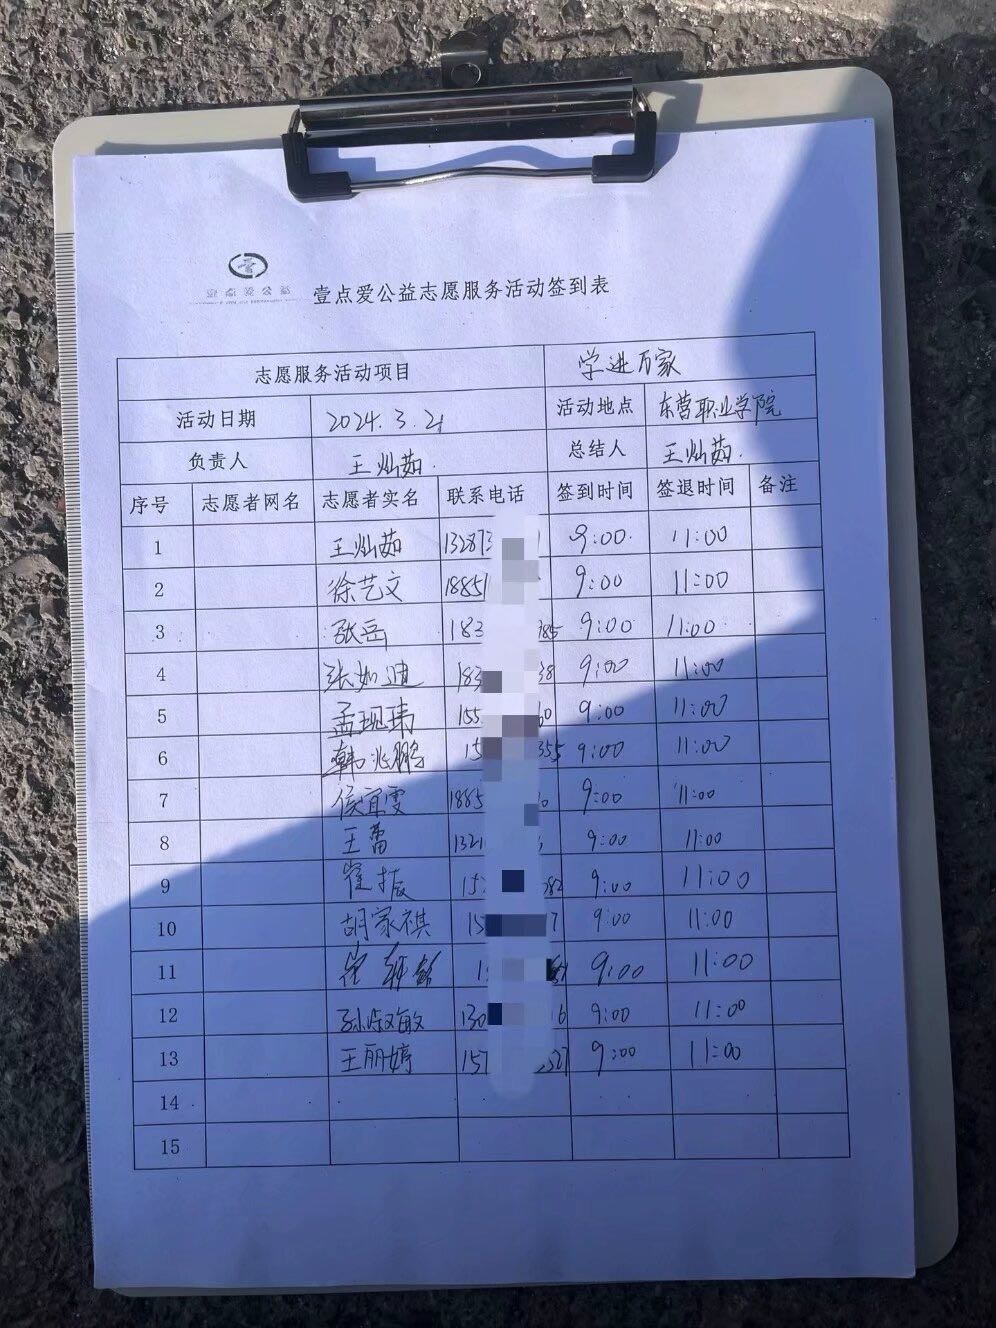 壹点爱公益志愿服务活动签到表
志愿服务活动项目 学进万家
活动日期 2024.3.21 活动地点 东营职业学院
负责人 王灿茹. 总结人 王灿茹.
序号 志愿者网名 志愿者实名 联系电话 签到时间 签退时间 备注
1 王灿茹 13287 9:00 11:00
2 徐艺文 1885 9:00 11:00
3 张岳 183 385 9:00 11:00
4 张如迪 183 38 9:00 11:00
5 孟现玮 155 60 9:00 11:00
6 韩兆鹏 15 355 9:00 11:00
7 侯宜雯 1885 9:00 11:00
8 王蕾 132 9:00 11:00
9 崔振 15 382 9:00 11:00
10 胡家祺 15 7 9:00 11:00
11 9:00 11:00
12 孙淑敏 130 16 9:00 11:00
13 王丽婷 157 527 9:00 11:00
14
15